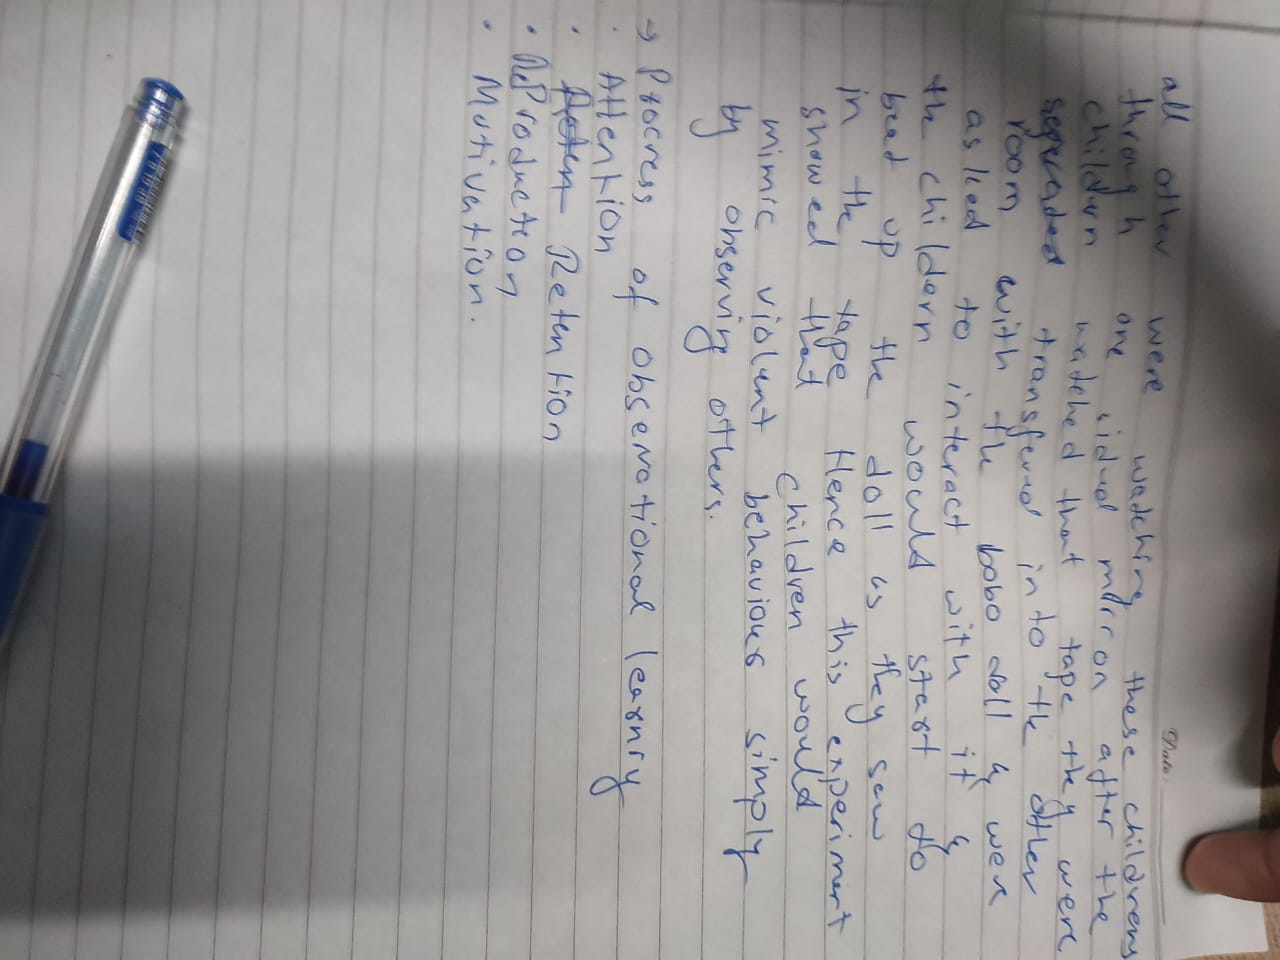 Date:
all other were watching these childrens
through one sidual mirron after the
childern watched that tape they were
seperated transferred into the other
room with the bobo doll & were
asked to interact with it &
the childern would start to
beat up the doll as they saw
in the tape Hence this experiment
showed that children would
mimic violent behaviours simply
by observing others.
→ Process of observational learning
· Attention
· Reten Retention
· Reproduction
· Motivation.